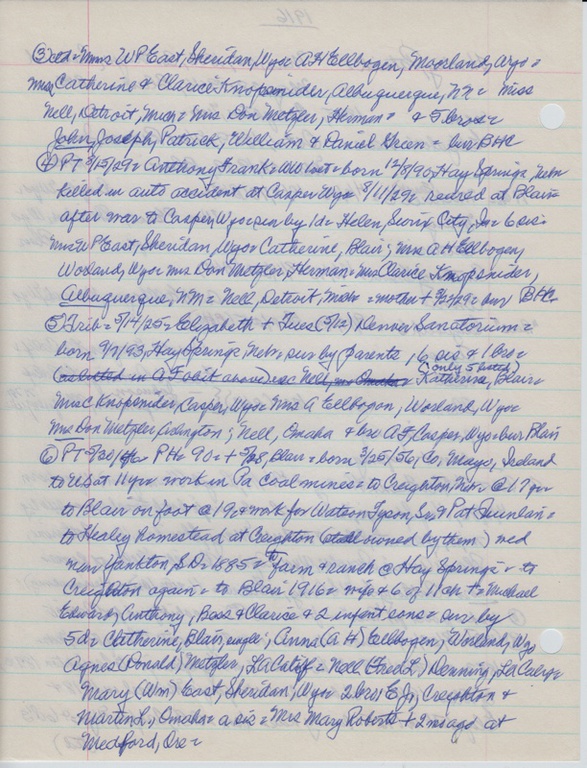 1916
③ctd = Mmes WP East, Sheridan, Wyo = A H Ellbogen, Moorland, Wyo =
Miss Catherine & Clarice Knopsnider, Albuquerque, NM = Miss
Nell, Detroit, Mich = Mrs Don Metzler, Herman = & 5 bros =
John, Joseph, Patrick, William & Daniel Green = bur BHC
④ PT 8/15/29 = Anthony Frank = WW vet = born 12/8/90, Hay Springs, Nebr
killed in auto accident at Casper Wyo 8/11/29 = reared at Blair =
after war to Casper, Wyo = sur by 1d = Helen, Sioux City, Ia = 6 sis =
Mmes WP East, Sheridan, Wyo = Catherine, Blair; Mrs A H Ellbogen,
Worland, Wyo = Mrs Don Metzler, Herman = Mrs Clarice Knopsnider,
Albuquerque, NM = Nell, Detroit, Mich = mother + 3/29/29 = bur BHC
⑤ Trib = 5/14/25 = Elizabeth + Tues (5/12) Denver Sanatorium =
born 9/7/93, Hay Springs Nebr, sur by parents, 6 sis & 1 bro =
(only 5 listed)
Katherine, Blair =
Mrs C Knopsnider Casper, Wyo = Mrs A Ellbogen, Worland, Wyo
Mrs Don Metzler Arlington; Nell, Omaha & bro AF, Casper, Wyo = bur Blair
⑥ PT = PH = 90 = + 5/28, Blair = born 3/25/56, Co, Mayo, Ireland
to US at 11 yr = work in Pa coal mines = to Creighton, Nebr @ 17 yr
to Blair on foot @ 19 & work for Watson Tyson, Sr, & Pat Quinlan =
to Healey Homestead at Creighton (still owned by them) wed
near Yankton, S.D. = 1885 = to farm & ranch @ Hay Springs = to
Creighton again = to Blair 1916 = wife & 6 of 11 ch + = Michael
Edward, Anthony, Bess & Clarice & 2 infant sons = sur by
5d = Catherine, Blair, single; Anna (A H) Ellbogen, Worland, Wyo
Agnes (Donald) Metzler, LA Calif = Nell (Fred L) Denning, LA Calif =
Mary (Wm) East, Sheridan, Wyo = 2 bro, E J, Creighton &
Martin L, Omaha = a sis = Mrs Mary Roberts + 2 mo ago at
Medford, Ore =